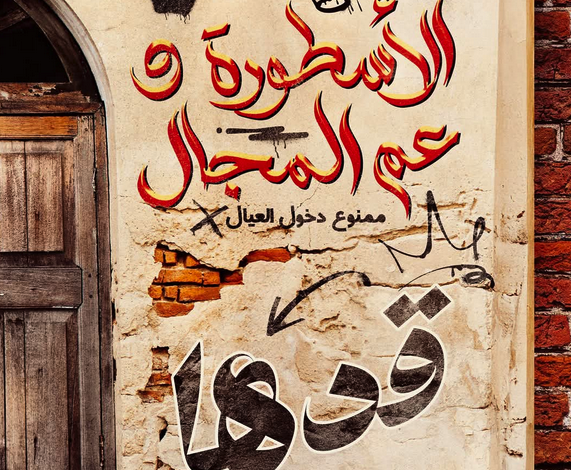 الأسطورة و
عم المجال
ممنوع دخول العيال
قدها